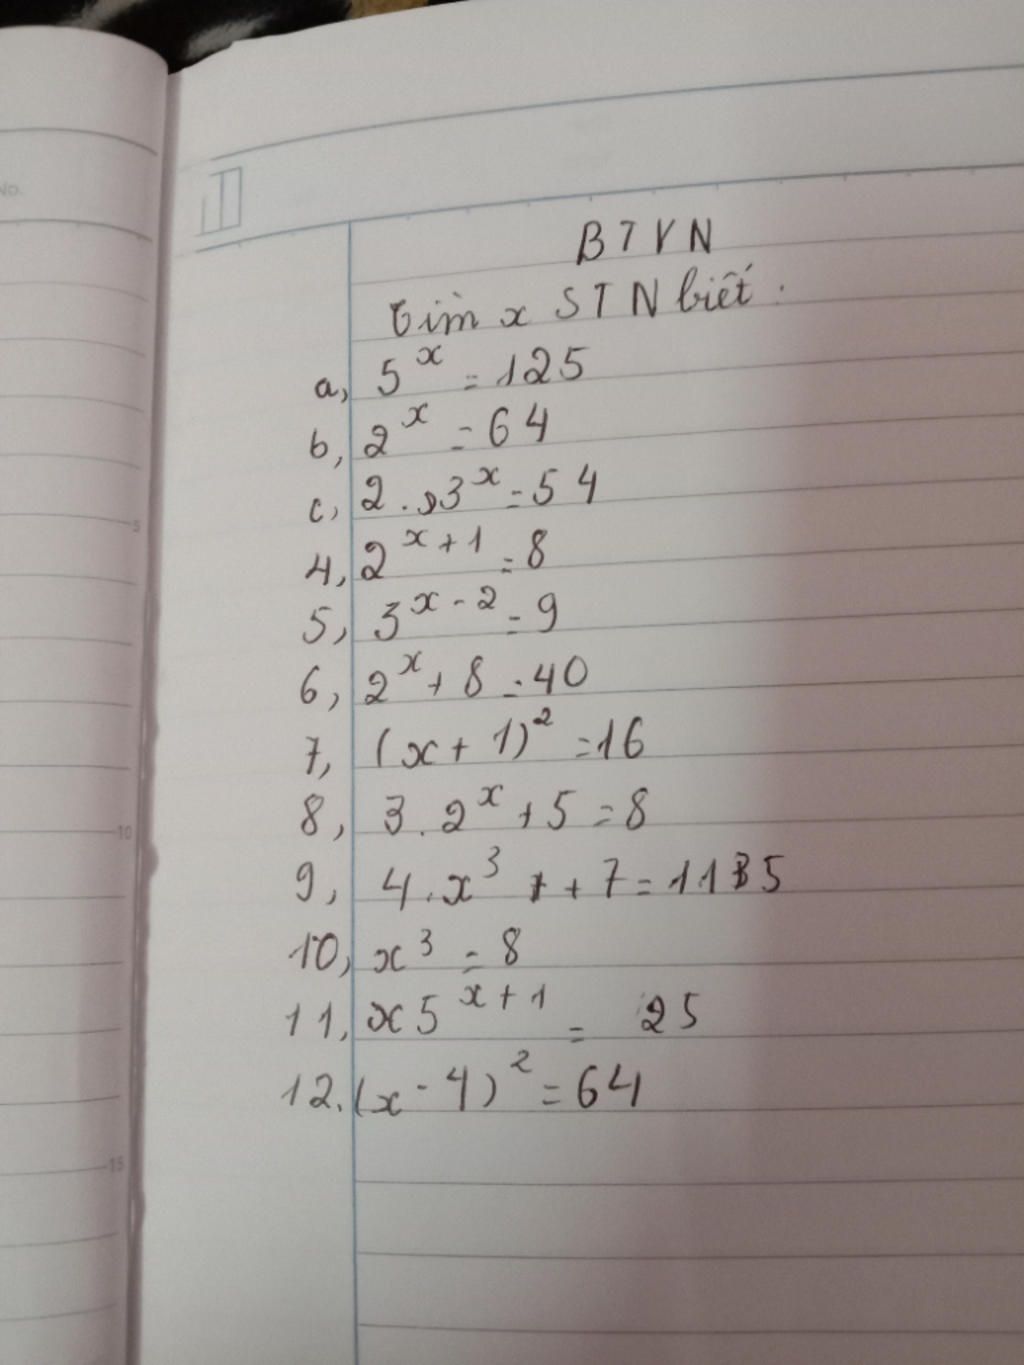 No.
BTVN
Tìm x STN biết:
a, 5^x = 125
b, 2^x = 64
c, 2.3^x = 54
4, 2^x+1 = 8
5, 3^x-2 = 9
6, 2^x + 8 = 40
7, (x + 1)^2 = 16
8, 3.2^x + 5 = 8
9, 4.x^3 + 7 =
10, x^3 = 8
11, x5^x+1 = 25
12. (x - 4)^2 = 64
5
10
15